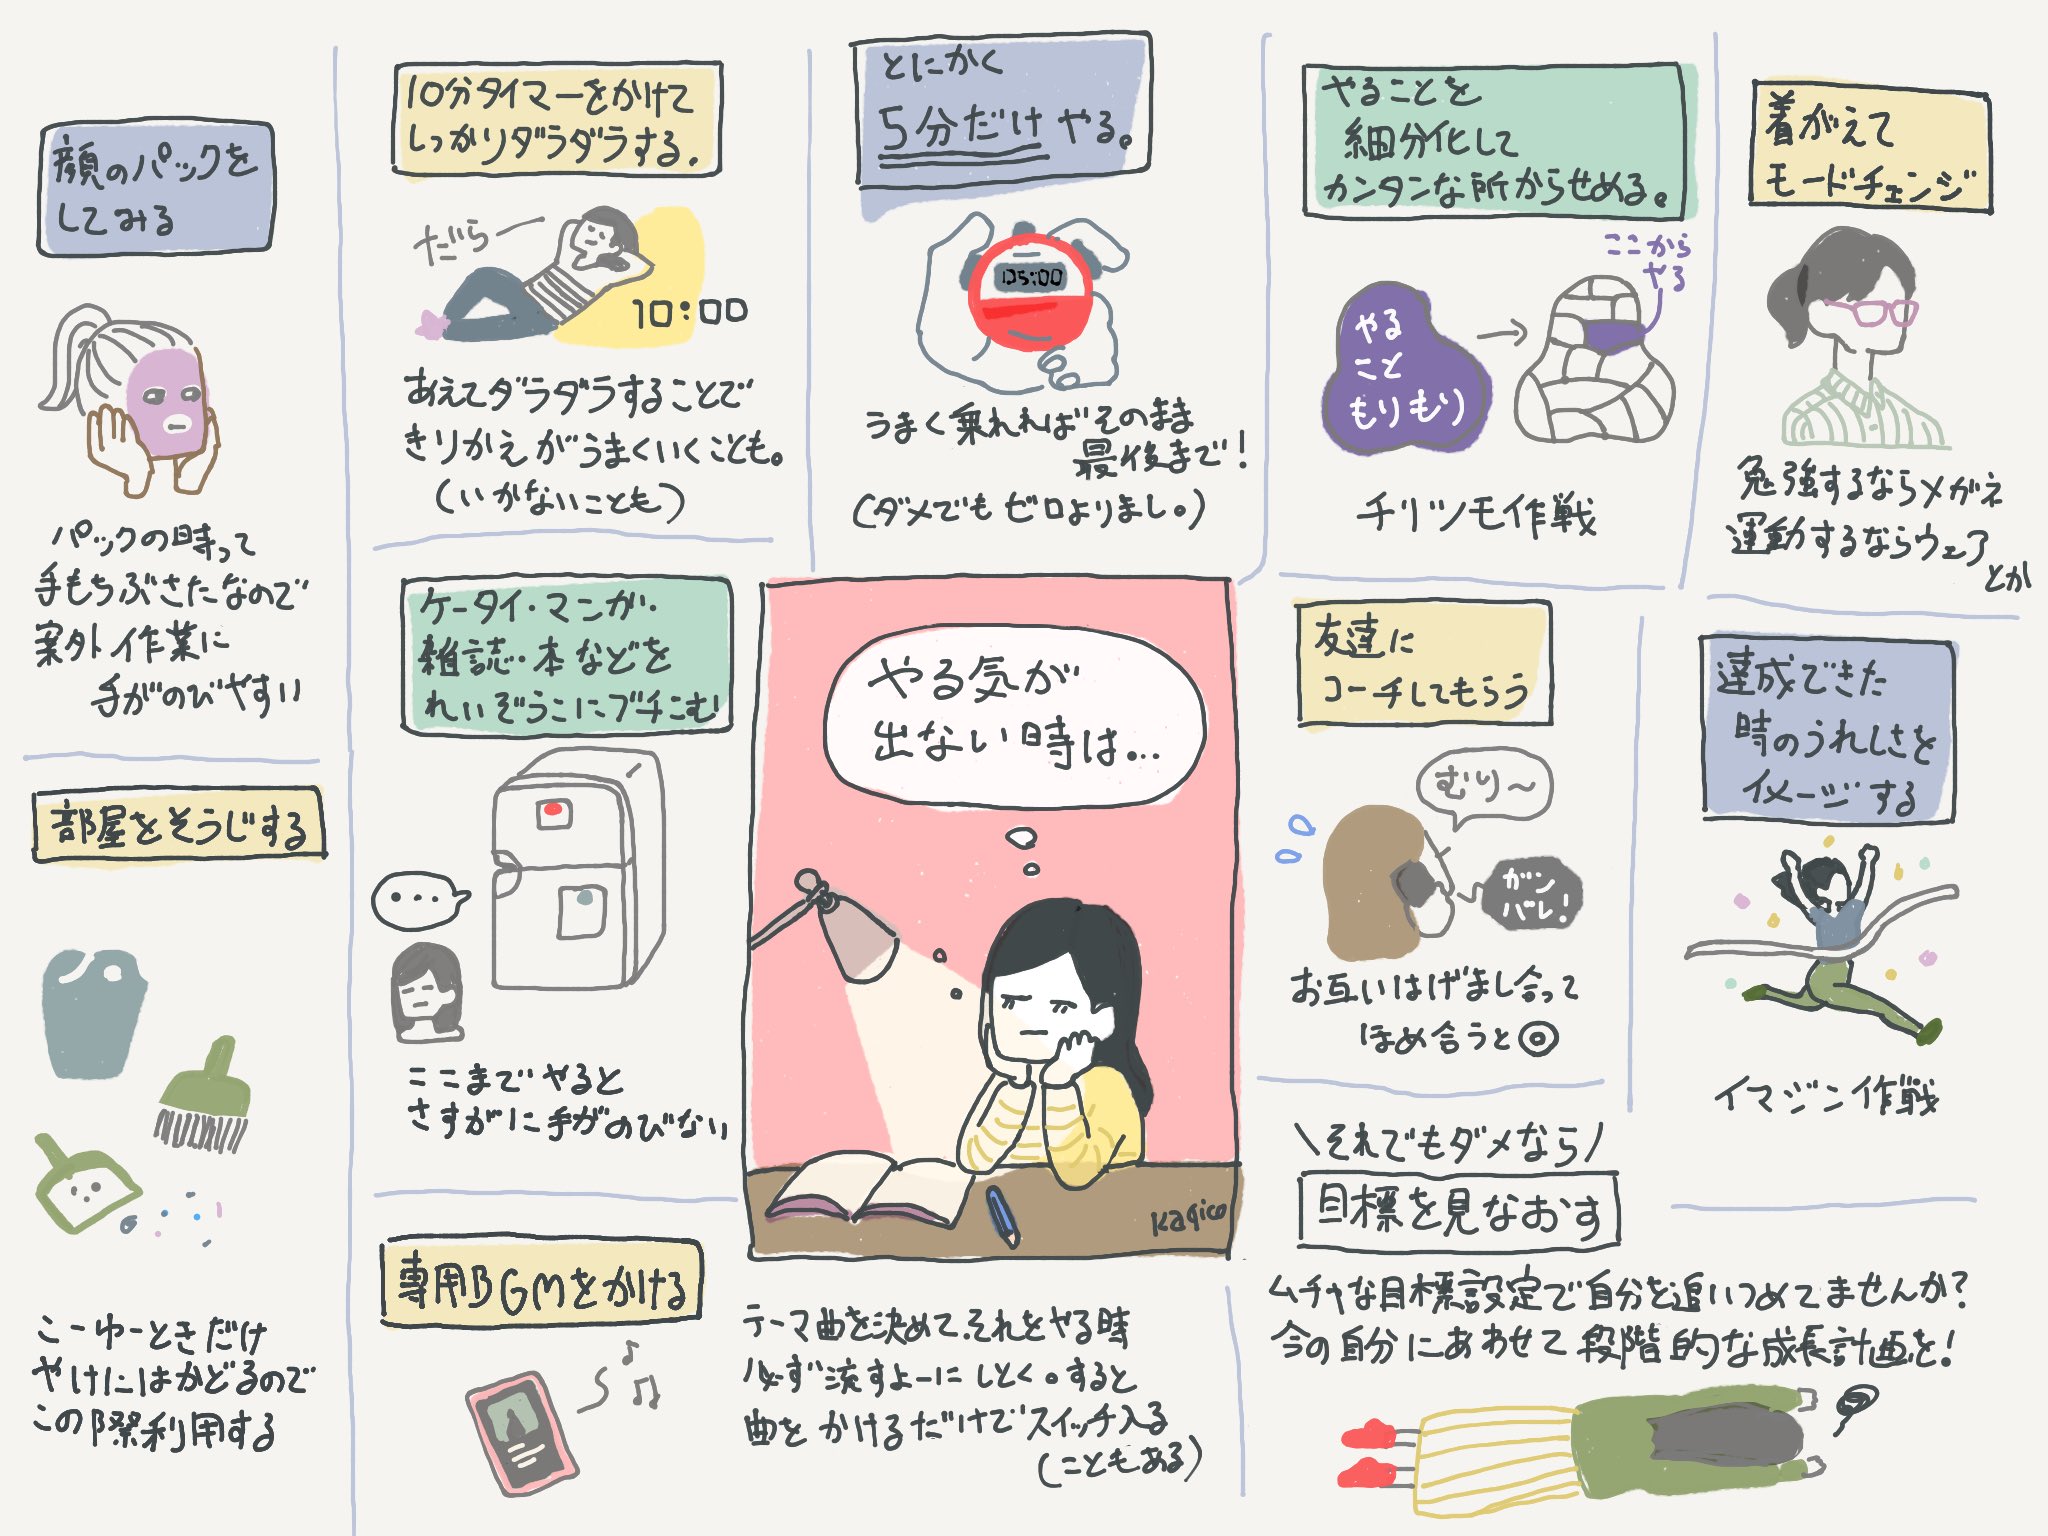 やる気が
出ない時は…
Kagico
顔のパックを
してみる
パックの時って
手もちぶさたなので
案外作業に
手がのびやすい
10分タイマーをかけて
しっかりダラダラする.
だらー
10:00
あえてダラダラすることで
きりかえがうまくいくことも。
(いかないことも)
とにかく
5分だけやる。
05:00
うまく乗れればそのまま
最後まで!
(ダメでもゼロよりまし。)
やることを
細分化して
カンタンな所からせめる。
ここから
やる
やる
こと
もりもり
チリツモ作戦
着がえて
モードチェンジ
勉強するならメガネ
運動するならウェア
とか
部屋をそうじする
こーゆーときだけ
やけにはかどるので
この際利用する
ケータイ・マンガ・
雑誌・本などを
れいぞうこにブチこむ!
...
ここまでやると
さすがに手がのびない
専用BGMをかける
テーマ曲を決めて、それをやる時
必ず流すよーにしとく。すると
曲をかけるだけでスイッチ入る
(こともある)
友達に
コーチしてもらう
むり〜
ガン
バレ!
お互いはげまし合って
ほめ合うと◎
達成できた
時のうれしさを
イメージする
イマジン作戦
\それでもダメなら/
目標を見なおす
ムチャな目標設定で自分を追いつめてませんか?
今の自分にあわせて段階的な成長計画を!